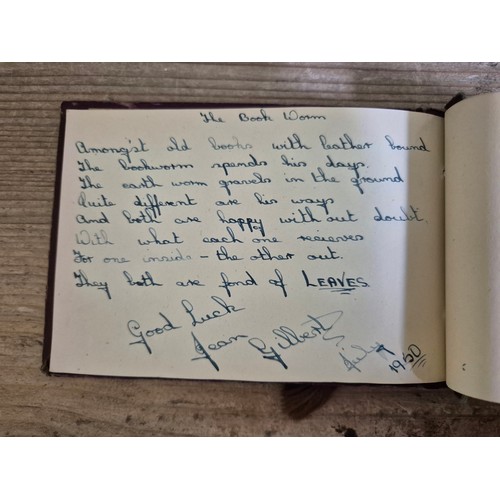 The Book Worm
Amongst old books with leather bound
The bookworm spends his days.
The earth worm gravels in the ground
Quite different are his ways
And both are happy with out doubt.
With what each one recieves
For one inside - the other out.
They both are fond of LEAVES.
Good Luck
Jean Gilbert
July 1960